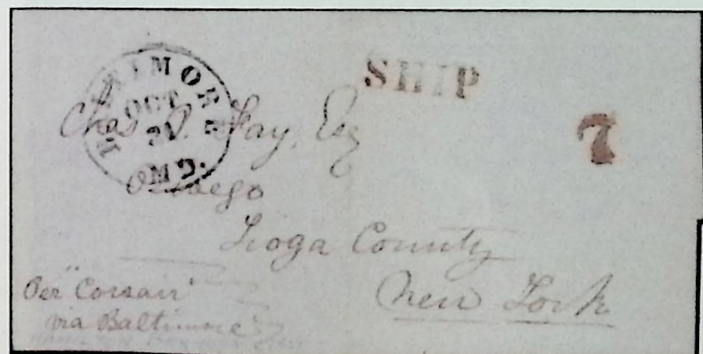 BALTIMORE
OCT
Md.
SHIP
7
Chas Fay, Esq
Owego
Tioga County
New York
Per "Corsair"
via Baltimore